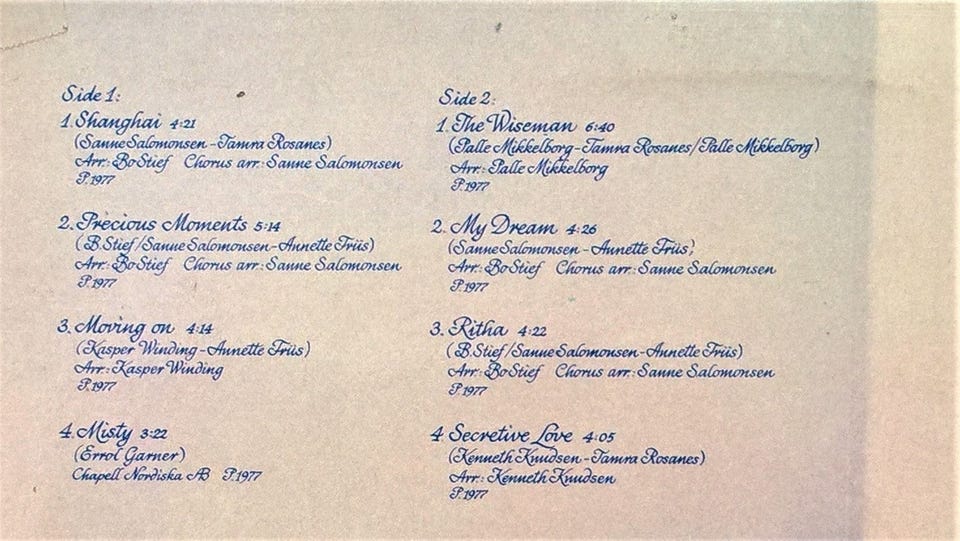 Side 1:
1. Shanghai 4:21
(Sanne Salomonsen - Tamra Rosanes)
Arr.: Bo Stief Chorus arr.: Sanne Salomonsen
P. 1977
2. Precious Moments 5:14
(B. Stief/Sanne Salomonsen - Annette Friis)
Arr.: Bo Stief Chorus arr.: Sanne Salomonsen
P. 1977
3. Moving on 4:14
(Kasper Winding - Annette Friis)
Arr.: Kasper Winding
P. 1977
4. Misty 3:22
(Errol Garner)
Chapell Nordiska AB P. 1977
Side 2:
1. The Wiseman 6:40
(Palle Mikkelborg - Tamra Rosanes/Palle Mikkelborg)
Arr.: Palle Mikkelborg
P. 1977
2. My Dream 4:26
(Sanne Salomonsen - Annette Friis)
Arr.: Bo Stief Chorus arr.: Sanne Salomonsen
P. 1977
3. Ritha 4:22
(B. Stief/Sanne Salomonsen - Annette Friis)
Arr.: Bo Stief Chorus arr.: Sanne Salomonsen
P. 1977
4 Secretive Love 4:05
(Kenneth Knudsen - Tamra Rosanes)
Arr.: Kenneth Knudsen
P. 1977